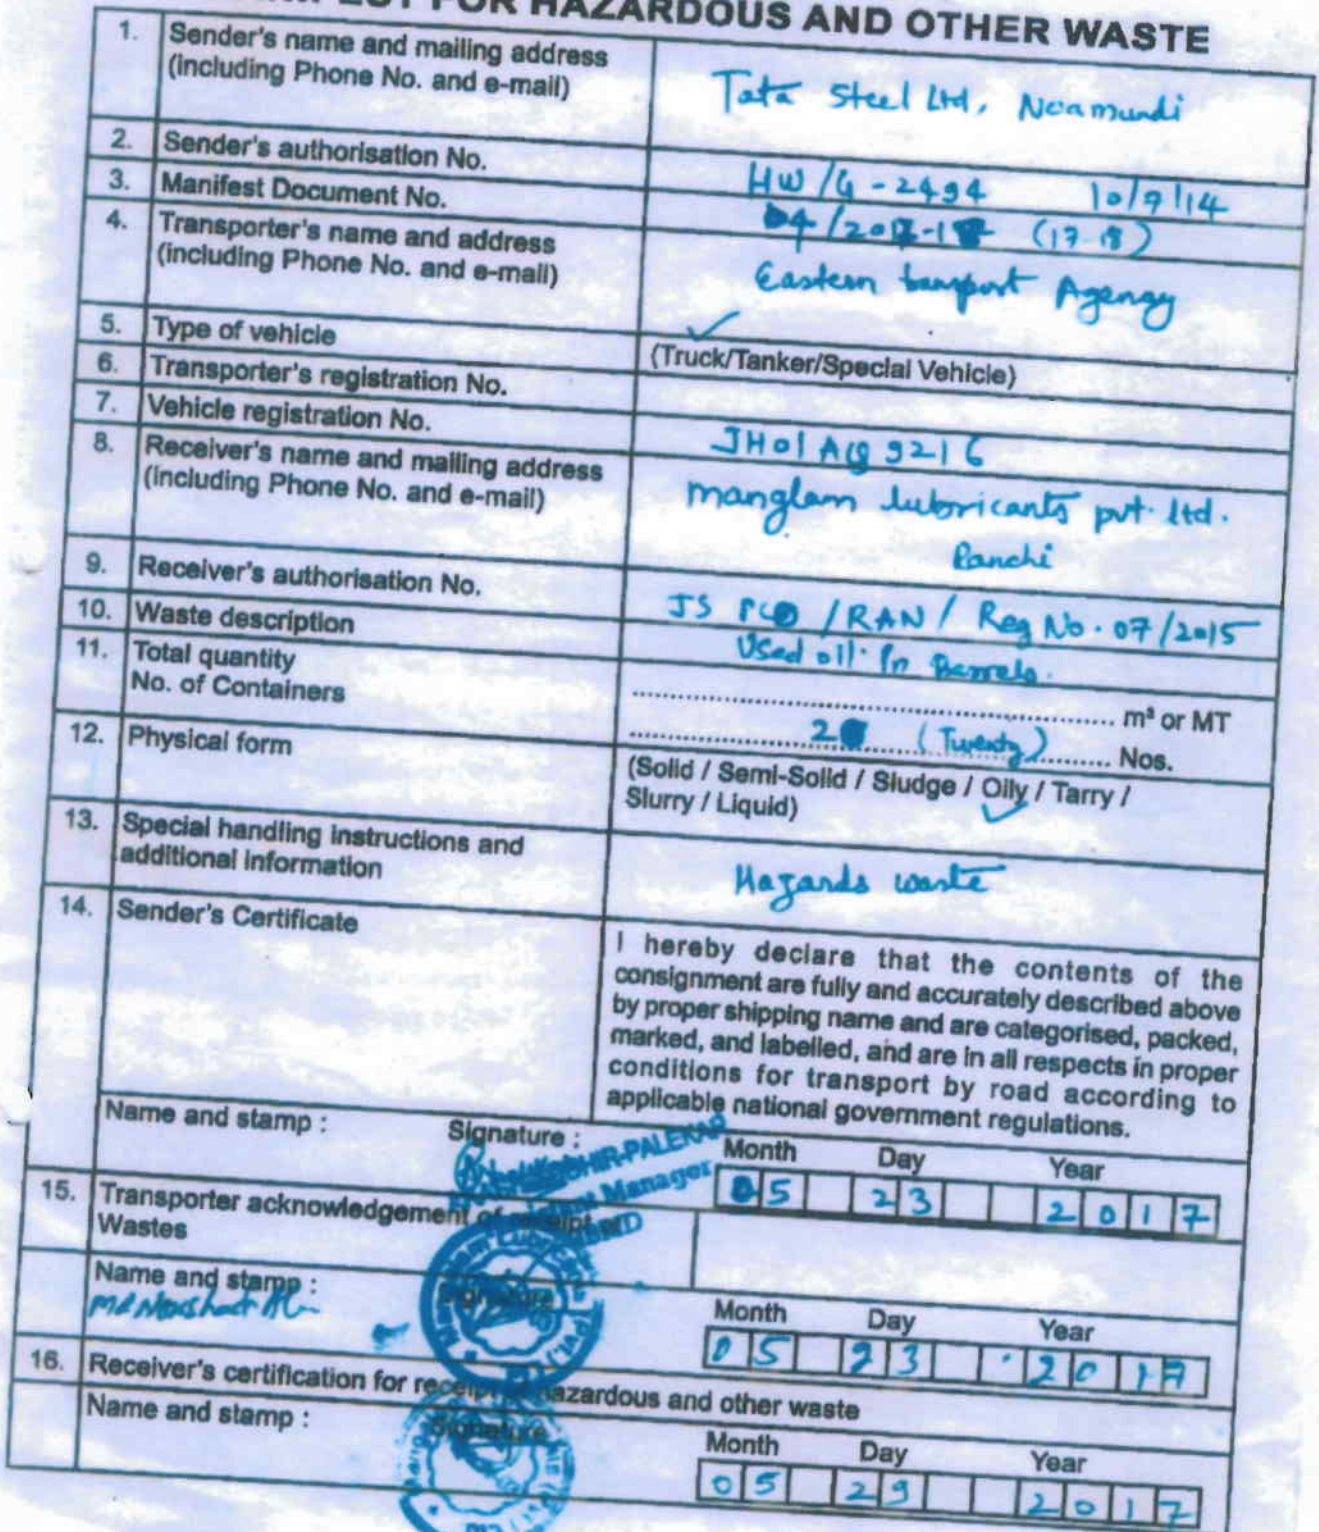 FOR HAZARDOUS AND OTHER WASTE
1. Sender's name and mailing address
(including Phone No. and e-mail)
Tata Steel Ltd, Noamundi
2. Sender's authorisation No.
HW/G-2494 10/9/14
3. Manifest Document No.
04/2017-18 (17-18)
4. Transporter's name and address
(including Phone No. and e-mail)
Eastern transport Agency
5. Type of vehicle
(Truck/Tanker/Special Vehicle)
6. Transporter's registration No.
7. Vehicle registration No.
JH01 AQ 9216
8. Receiver's name and mailing address
(including Phone No. and e-mail)
manglam lubricants pvt. ltd.
Ranchi
9. Receiver's authorisation No.
JS PCB /RAN/ Reg No. 07/2015
10. Waste description
Used oil. In Barrels.
11. Total quantity
m³ or MT
No. of Containers
20 (Twenty) Nos.
12. Physical form
(Solid / Semi-Solid / Sludge / Oily / Tarry /
Slurry / Liquid)
13. Special handling instructions and
additional information
Hazards waste
14. Sender's Certificate
I hereby declare that the contents of the
consignment are fully and accurately described above
by proper shipping name and are categorised, packed,
marked, and labelled, and are in all respects in proper
conditions for transport by road according to
applicable national government regulations.
Name and stamp : Signature : Month Day Year
PALEKAR
Manager
05 23 2017
15. Transporter acknowledgement of receipt of
Wastes
Name and stamp : Signature Month Day Year
05 23 2017
16. Receiver's certification for receipt of hazardous and other waste
Name and stamp : Signature Month Day Year
05 29 2017